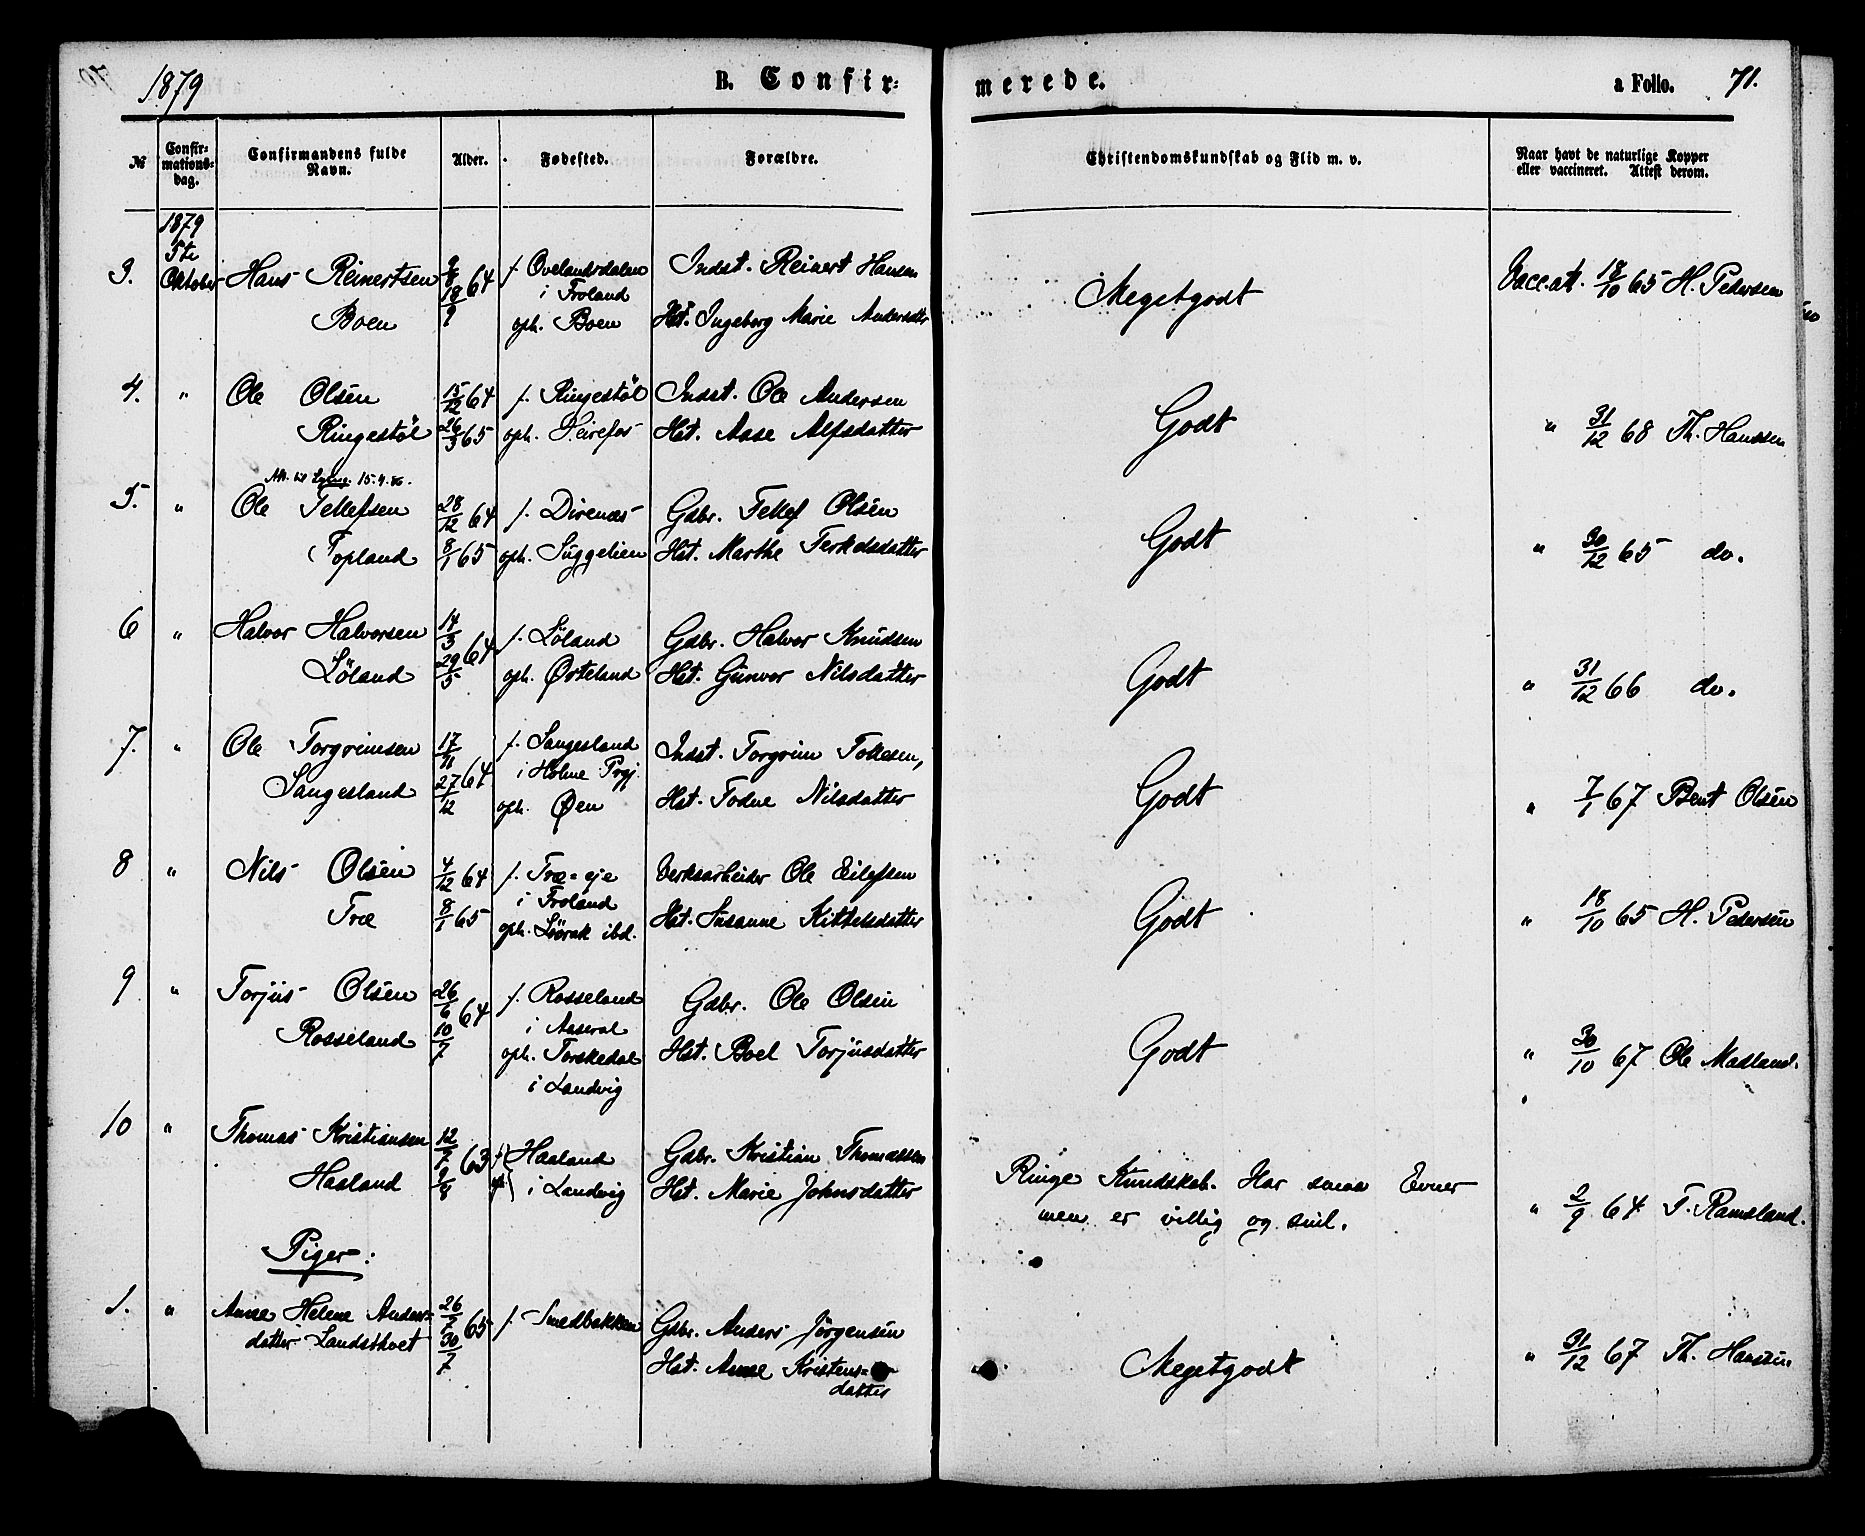 1879
B. Confir-
merede.
a Folio. 71.
No
Confir-
mations-
dag.
Confirmandens fulde
Navn.
Alder.
Fødested.
Forældre.
Christendomskundskab og Flid m. v.
Naar havt de naturlige Kopper
eller vaccineret. Attest derom.
1879
5te
Oktober
3. Hans Reinertsen
Boen
64
18/9
f. Ovelandsdalen
i Froland
oph. Boen
Indst. Reinert Hansen
Hst. Ingeborg Marie Andersdtr
Megetgodt
Vacc. att. 18/10 65 H. Pedersen
4. " Ole Olsen
Ringestøl
15/12 64
26/3 65
f. Ringestøl
oph. Heirefos
Indst. Ole Andersen
Hst. Aase Alfsdatter
Godt
" 31/12 68 Th. Hanssen
15.4.86.
5. " Ole Tellefsen
Topland
28/12 64
8/1 65
f. Direnæs
oph. Suggelien
Gdbr. Tellef Olsen
Hst. Marthe Terkelsdatter
Godt
" 30/12 65 do.
6 " Halvor Halvorsen
Løland
14/3 64
29/5
f. Løland
oph. Ørteland
Gdbr. Halvor Knudsen
Hst. Gunvor Nilsdatter
Godt
" 31/12 66 do.
7. " Ole Torgrimsen
Sangesland
17/11 64
27/12
f. Sangesland
i Holme Prgj.
oph. Øen
Indst. Torgrim Tollesen,
Hst. Todne Nilsdatter
Godt
" 7/1 67 Bent Olsen
8 " Nils Olsen
Træ
4/12 64
8/1 65
f. Træ-eje
i Froland
oph. Løvrak ibd.
Verksarbeider Ole Eilefsen
Hst. Susanne Kittelsdatter
Godt
" 18/10 65 H. Pedersen
9 " Torjus Olsen
Rosseland
26/6 64
10/7
f. Rosseland
i Aaseral
oph. Torskedal
i Landvig
Gdbr. Ole Olsen
Hst. Boel Torjusdatter
Godt
" 30/10 67 Ole Masland.
10 " Thomas Kristiansen
Haaland
12/7 63
9/8
f. oph. } Haaland
i Landvig
Gdbr. Kristian Thomassen
Hst. Marie Johnsdatter
Ringe Kundskab. Har smaa Evner
men er villig og snil.
" 2/9 64 T. Ramsland.
Piger:
1. " Anne Helene Anders-
datter Landsthvet
26/7 65
30/7
f. Smedbakken
Gdbr. Anders Jørgensen
Hst. Anne Kristens-
datter
Megetgodt
" 31/12 67 Th. Hanssen